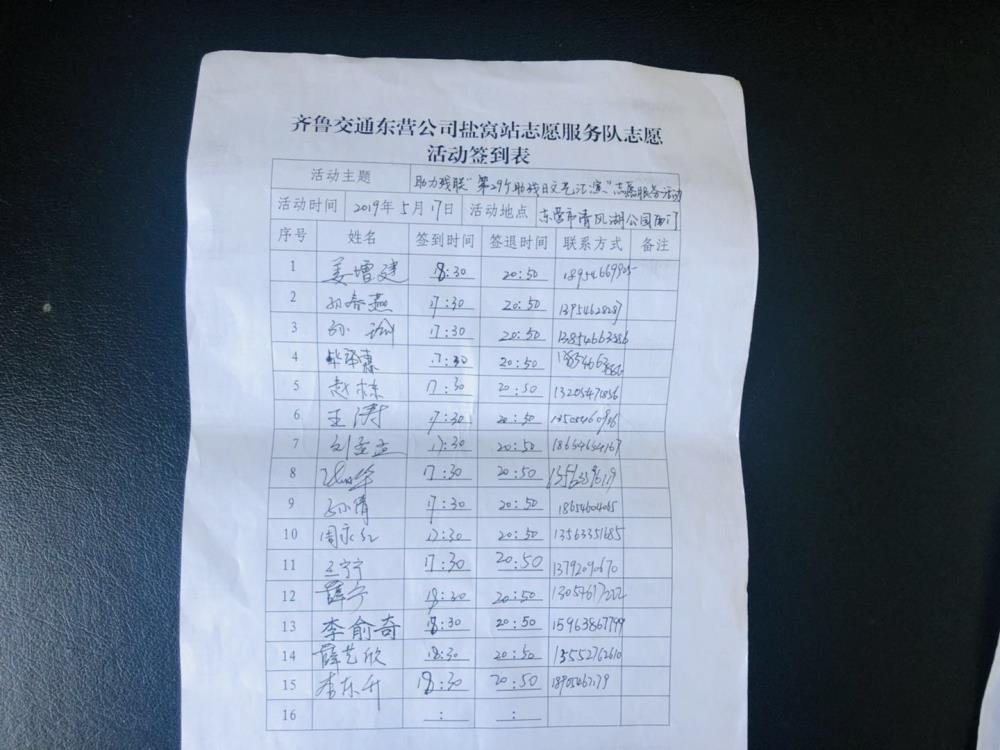 齐鲁交通东营公司盐窝站志愿服务队志愿
活动签到表
活动主题 助力残联"第29个助残日文艺汇演"志愿服务活动
活动时间 2019年5月17日 活动地点 东营市清风湖公园西门
序号 姓名 签到时间 签退时间 联系方式 备注
1 姜增建 18:30 20:50 18954669905
2 孙春燕 17:30 20:50
3 孙瑜 17:30 20:50 13854663886
4 17:30 20:50
5 赵栋 17:30 20:50
6 王涛 17:30 20:50
7 刘圣孟 17:30 20:50 18654654167
8 17:30 20:50
9 孙倩 17:30 20:50 18654604065
10 周永红 17:30 20:50 13563351685
11 王宁宁 17:30 20:50
12 薛宁 18:30 20:50 13054617222
13 李俞奇 18:30 20:50 15963867799
14 薛艺欣 18:30 20:50 13552762610
15 李东升 18:30 20:50
16 : :